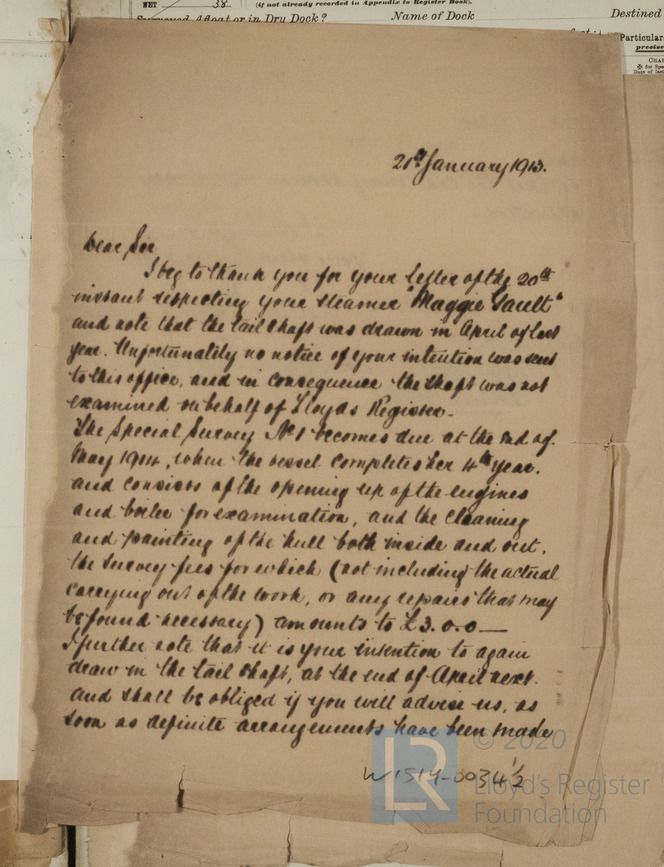 NET 38 (if not already recorded in Appendix to Register Book).
Surveyed Afloat or in Dry Dock? Name of Dock Destined
Particular
precise
CHAR
for Spe
Date of last
21st January 1913.
Dear Sir
I beg to thank you for your letter of the 20th
instant respecting your steamer "Maggie Gault"
and note that the tail shaft was drawn in April of last
year. Unfortunately no notice of your intention was sent
to this office, and in consequence the shaft was not
examined on behalf of Lloyds Register.
The Special Survey No 1 becomes due at the end of
May 1914, when the vessel completes her 4th year.
and consists of the opening up of the engines
and boiler for examination, and the cleaning
and painting of the hull both inside and out,
the survey fees for which (not including the actual
carrying out of the work, or any repairs that may
be found necessary) amounts to £3.0.0—
I further note that it is your intention to again
draw in the tail shaft, at the end of April next.
and shall be obliged if you will advise us, as
soon as definite arrangements have been made
W1514-0034 1/2
LR
© 2020
Lloyd's Register
Foundation